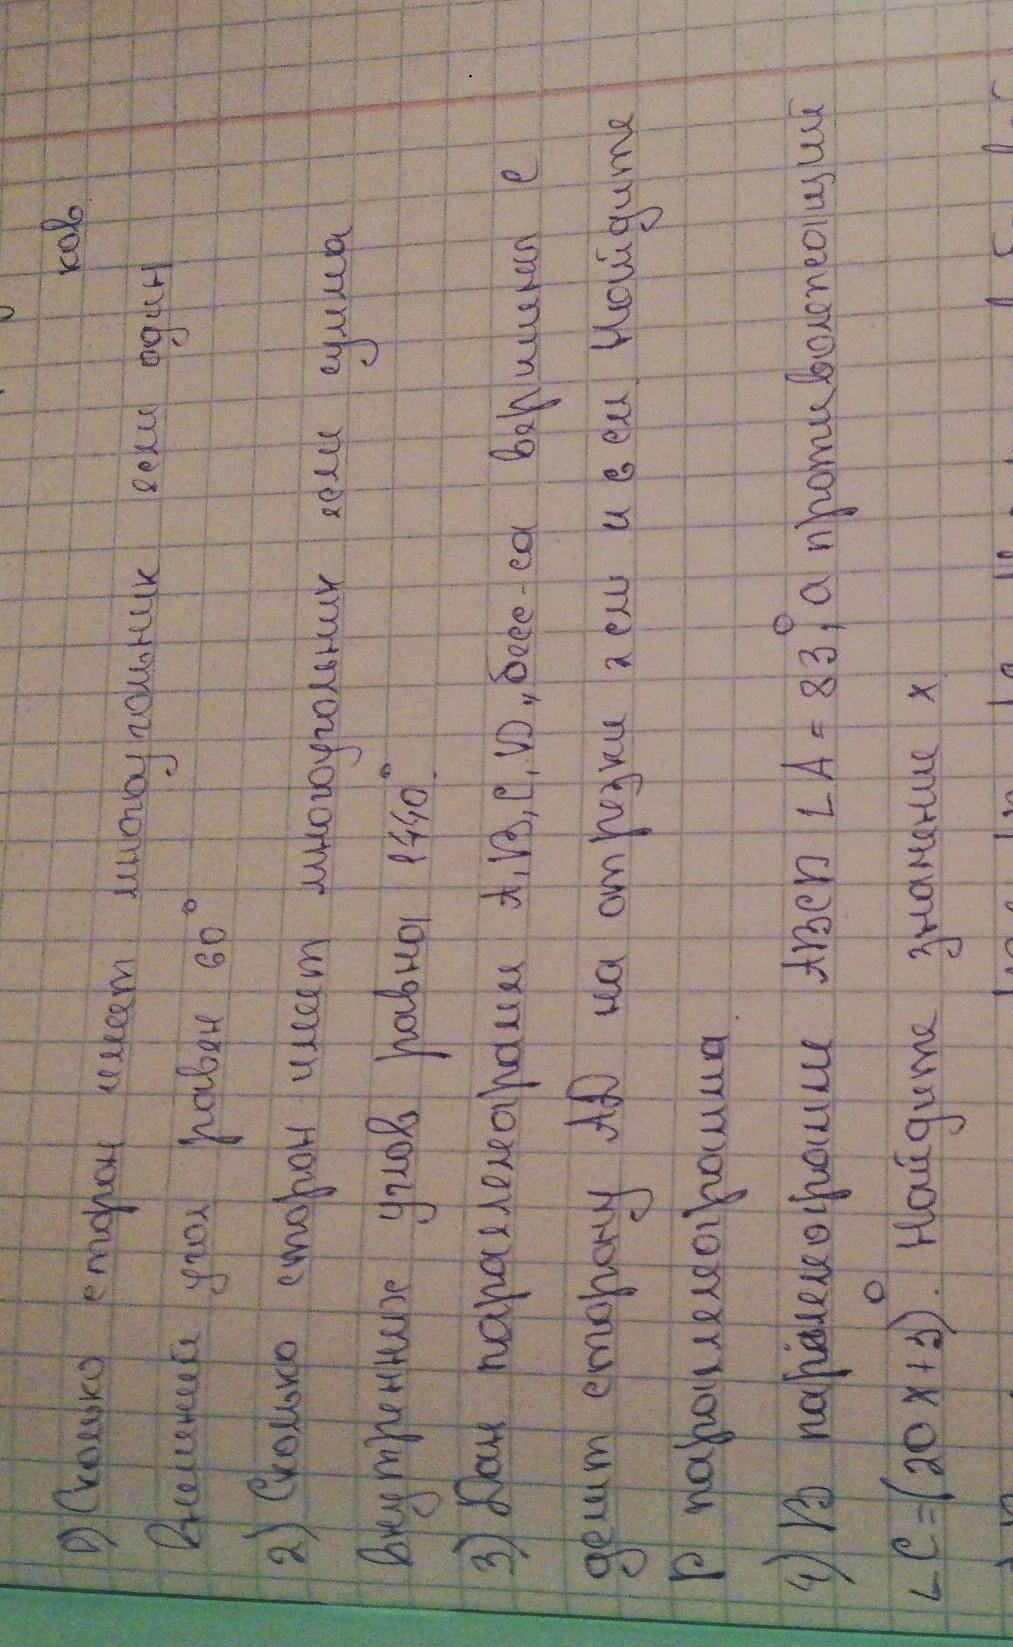 ков
1) Сколько сторон имеет многоугольник если один
внешний угол равен 60°
2) Сколько сторон имеет многоугольник если сумма
внутренних углов равна 1440°.
3) Дан паралелограмм A, B, C, D, бисс-са вершины C
делит сторону AD на отрезки 2 см и 6 см. Найдите
P паролелограмма
4) В паралелограмме ABCD ∠A = 83°, а противолежащий
∠C = (20x+3)°. Найдите значение x